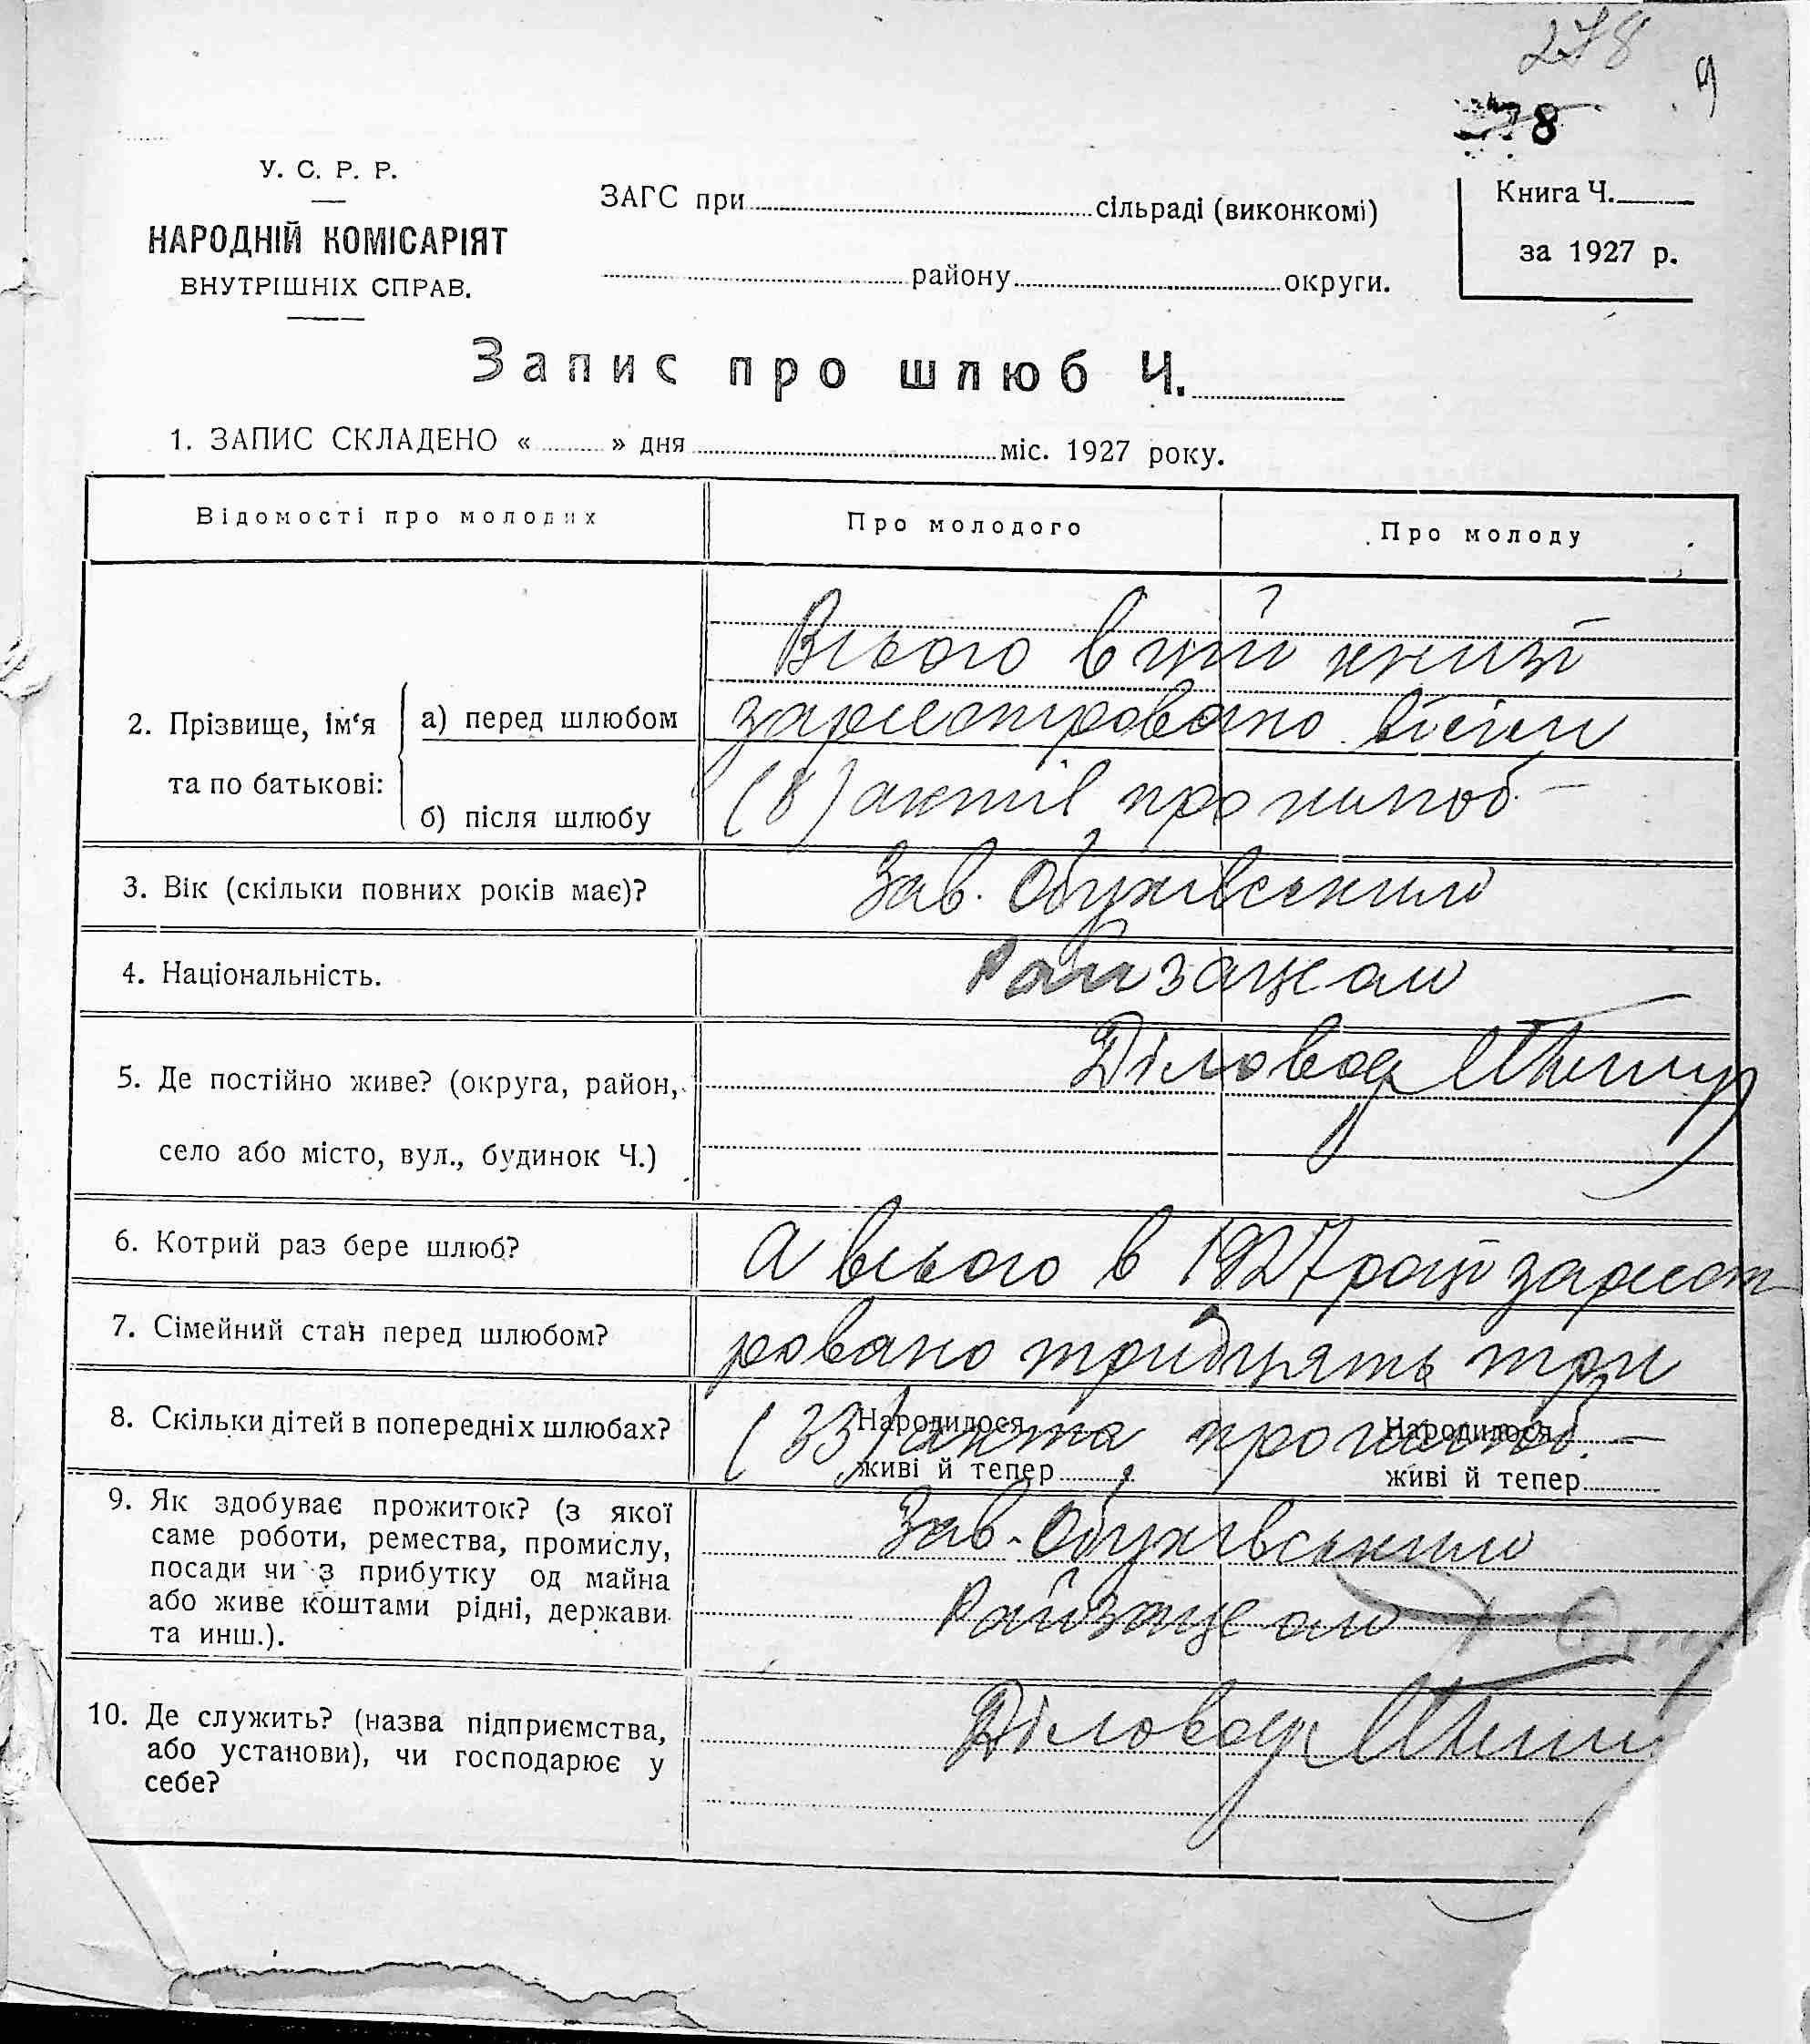 278
9
8
У. С. Р. Р.
НАРОДНІЙ КОМІСАРІЯТ
ВНУТРІШНІХ СПРАВ.
ЗАГС при сільраді (виконкомі)
району округи.
Книга Ч.
за 1927 р.
Запис про шлюб Ч.
1. ЗАПИС СКЛАДЕНО « » дня міс. 1927 року.
Відомості про молодих
Про молодого
Про молоду
2. Прізвище, ім‘я та по батькові:
а) перед шлюбом
б) після шлюбу
Всього в цій книзі
зареєстровано вісім
(8) актів про шлюб. —
Зав. Обухівським
Райзагсом
Діловод
3. Вік (скільки повних років має)?
4. Національність.
5. Де постійно живе? (округа, район,
село або місто, вул., будинок Ч.)
6. Котрий раз бере шлюб?
А всього в 1927 році зареєст
7. Сімейний стан перед шлюбом?
ровано тридцять три
8. Скільки дітей в попередніх шлюбах?
Народилося
живі й тепер
Народилося
живі й тепер
(33) акта про шлюб. —
9. Як здобуває прожиток? (з якої
саме роботи, ремества, промислу,
посади чи з прибутку од майна
або живе коштами рідні, держави
та инш.).
Зав. Обухівським
Райзагсом
10. Де служить? (назва підприємства,
або установи), чи господарює у
себе?
Діловод